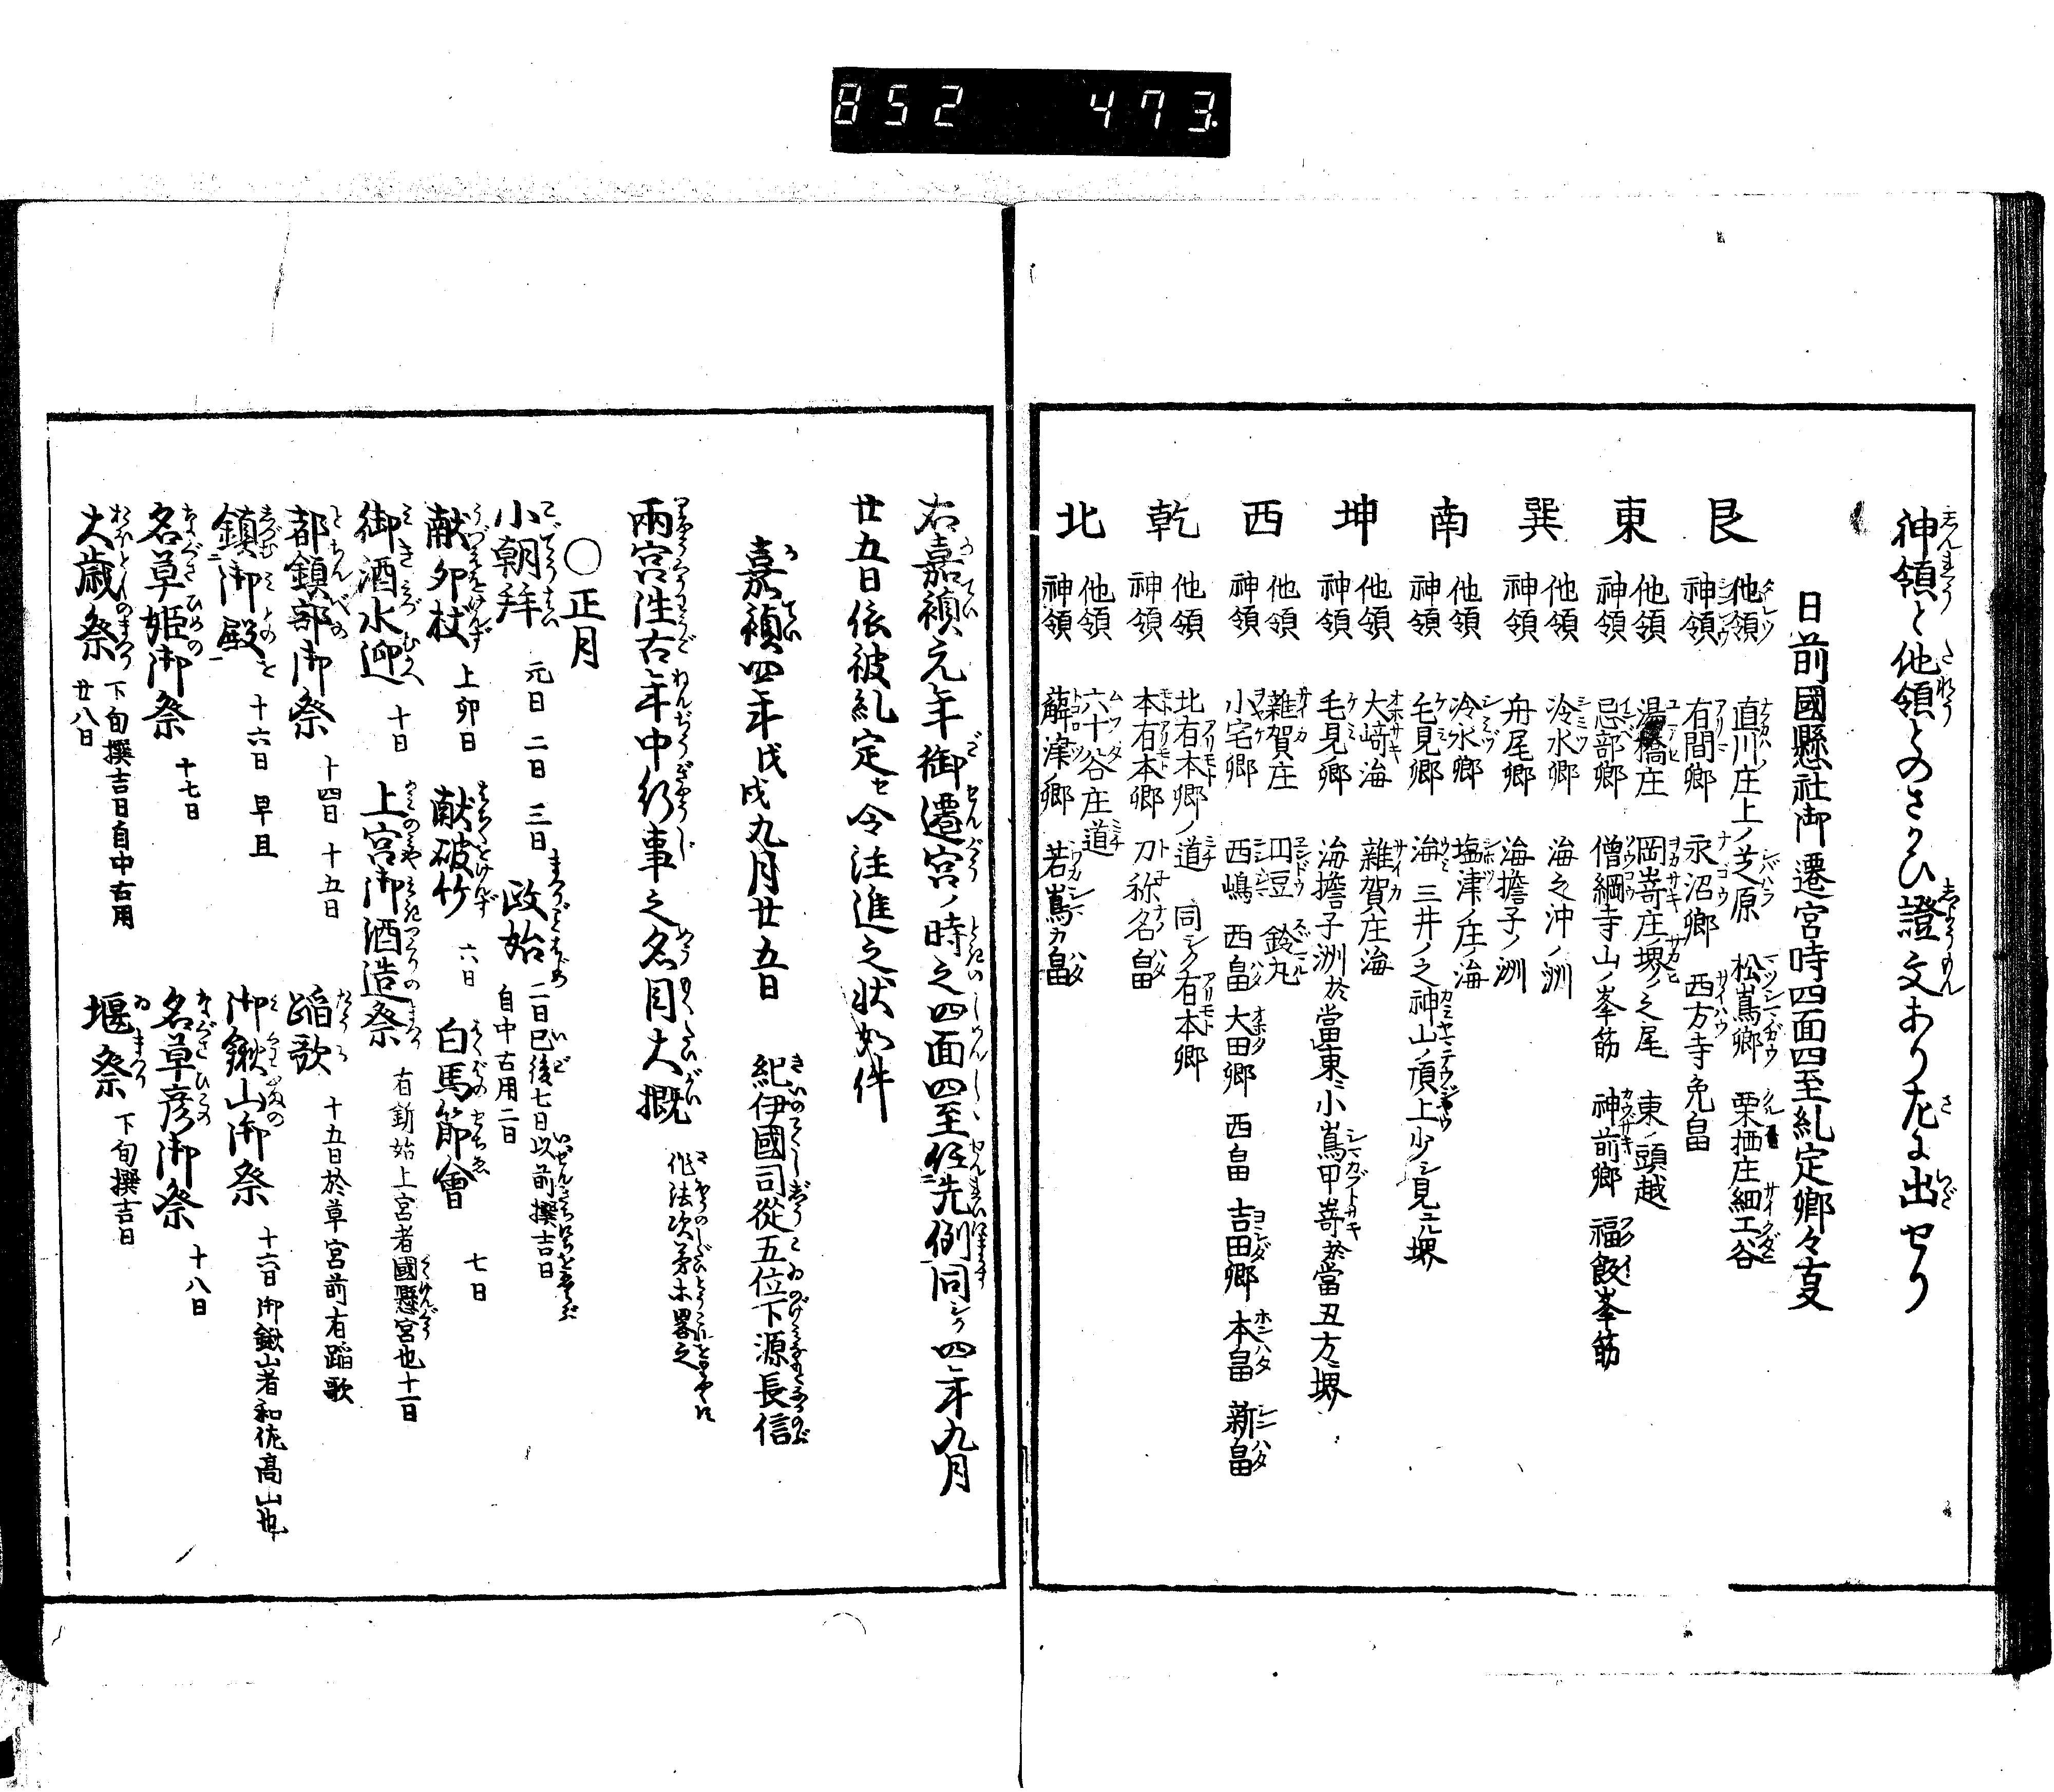 852 473
神領と他領とのさかひ證文あり左に出せり
日前國懸社御遷宮時四面四至糺定郷々支
艮
他領 直川庄上ノ芝原 松嶌郷 栗栖庄細工谷
神領 有間郷 永沼郷 西方寺免畠
東
他領 湯橋庄 岡嵜庄ノ堺之尾 東ノ頭越
神領 忌部郷 僧綱寺山ノ峯筋 神前郷 福飯峯筋
巽
他領 冷水郷 海之沖ノ洲
神領 舟尾郷 海擔子ノ洲
南
他領 冷水郷 塩津ノ庄ノ海
神領 毛見郷 海 三井ノ之神山ノ頂上少シ見ユル堺
坤
他領 大﨑海 雜賀庄海
神領 毛見郷 海擔子洲於當東ニ小嶌甲嵜於當丑方堺
西
他領 雜賀庄 罒豆 鈴丸
神領 小宅郷 西嶋 西畠 大田郷 西畠 吉田郷 本畠 新畠
乾
他領 北右木郷ノ道 同シク有本郷
神領 本有本郷 刀祢名畠
北
他領 六十谷庄道
神領 薢津郷 若嶌カ畠
右嘉禎元年御遷宮ノ時之四面四至任先例同シク四年九月
廿五日依被糺定セ令注進之状如件
嘉禎四年戊戌九月廿五日 紀伊國司從五位下源長信
兩宮往古年中行事之名目大概 作法次第等畧之
○正月
小朝拜 元日 二日 三日 政始 二日已後七日以前撰吉日 自中古用二日
献卯杖 上卯日 献破竹 六日 白馬節會 七日
御酒水迎 十日 上宮御酒造祭 有釿始上宮者國懸宮也十一日
都鎮部御祭 十四日 十五日 蹈歌 十五日於草宮前有蹈歌
鎮御殿 十六日 早旦 御鍬山御祭 十六日御鍬山者和佐高山也
名草姫御祭 十七日 名草彦御祭 十八日
大歳祭 下旬撰吉日自中古用廿八日 堰祭 下旬撰吉日